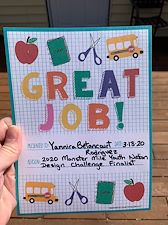 GREAT
JOB!
PRESENTED TO Yannira Betancourt DATE 3-13-20
Rodriguez
FOR 2020 Monster Mile Youth Nation
Design Challenge Finalist